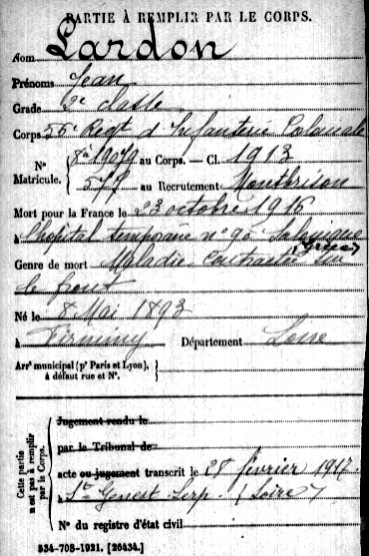 PARTIE À REMPLIR PAR LE CORPS.
Nom Lardon
Prénoms Jean
Grade 2e classe
Corps 56e Régt d'Infanterie Coloniale
N° Matricule. { 8n 19079 au Corps. — Cl. 1913
579 au Recrutement Montbrison
Mort pour la France le 23 octobre 1916
à l'hôpital temporaire n° 90 Salonique (Grèce)
Genre de mort Maladie contractée sur
le front
Né le 8 Mai 1893
à Firminy Département Loire
Arrt municipal (pr Paris et Lyon), à défaut rue et N°. }
Cette partie n'est pas à remplir par le Corps.
Jugement rendu le
par le Tribunal de
acte ou jugement transcrit le 28 février 1917
à St Genest Lerp. (Loire)
N° du registre d'état civil
534-708-1921. [26434.]